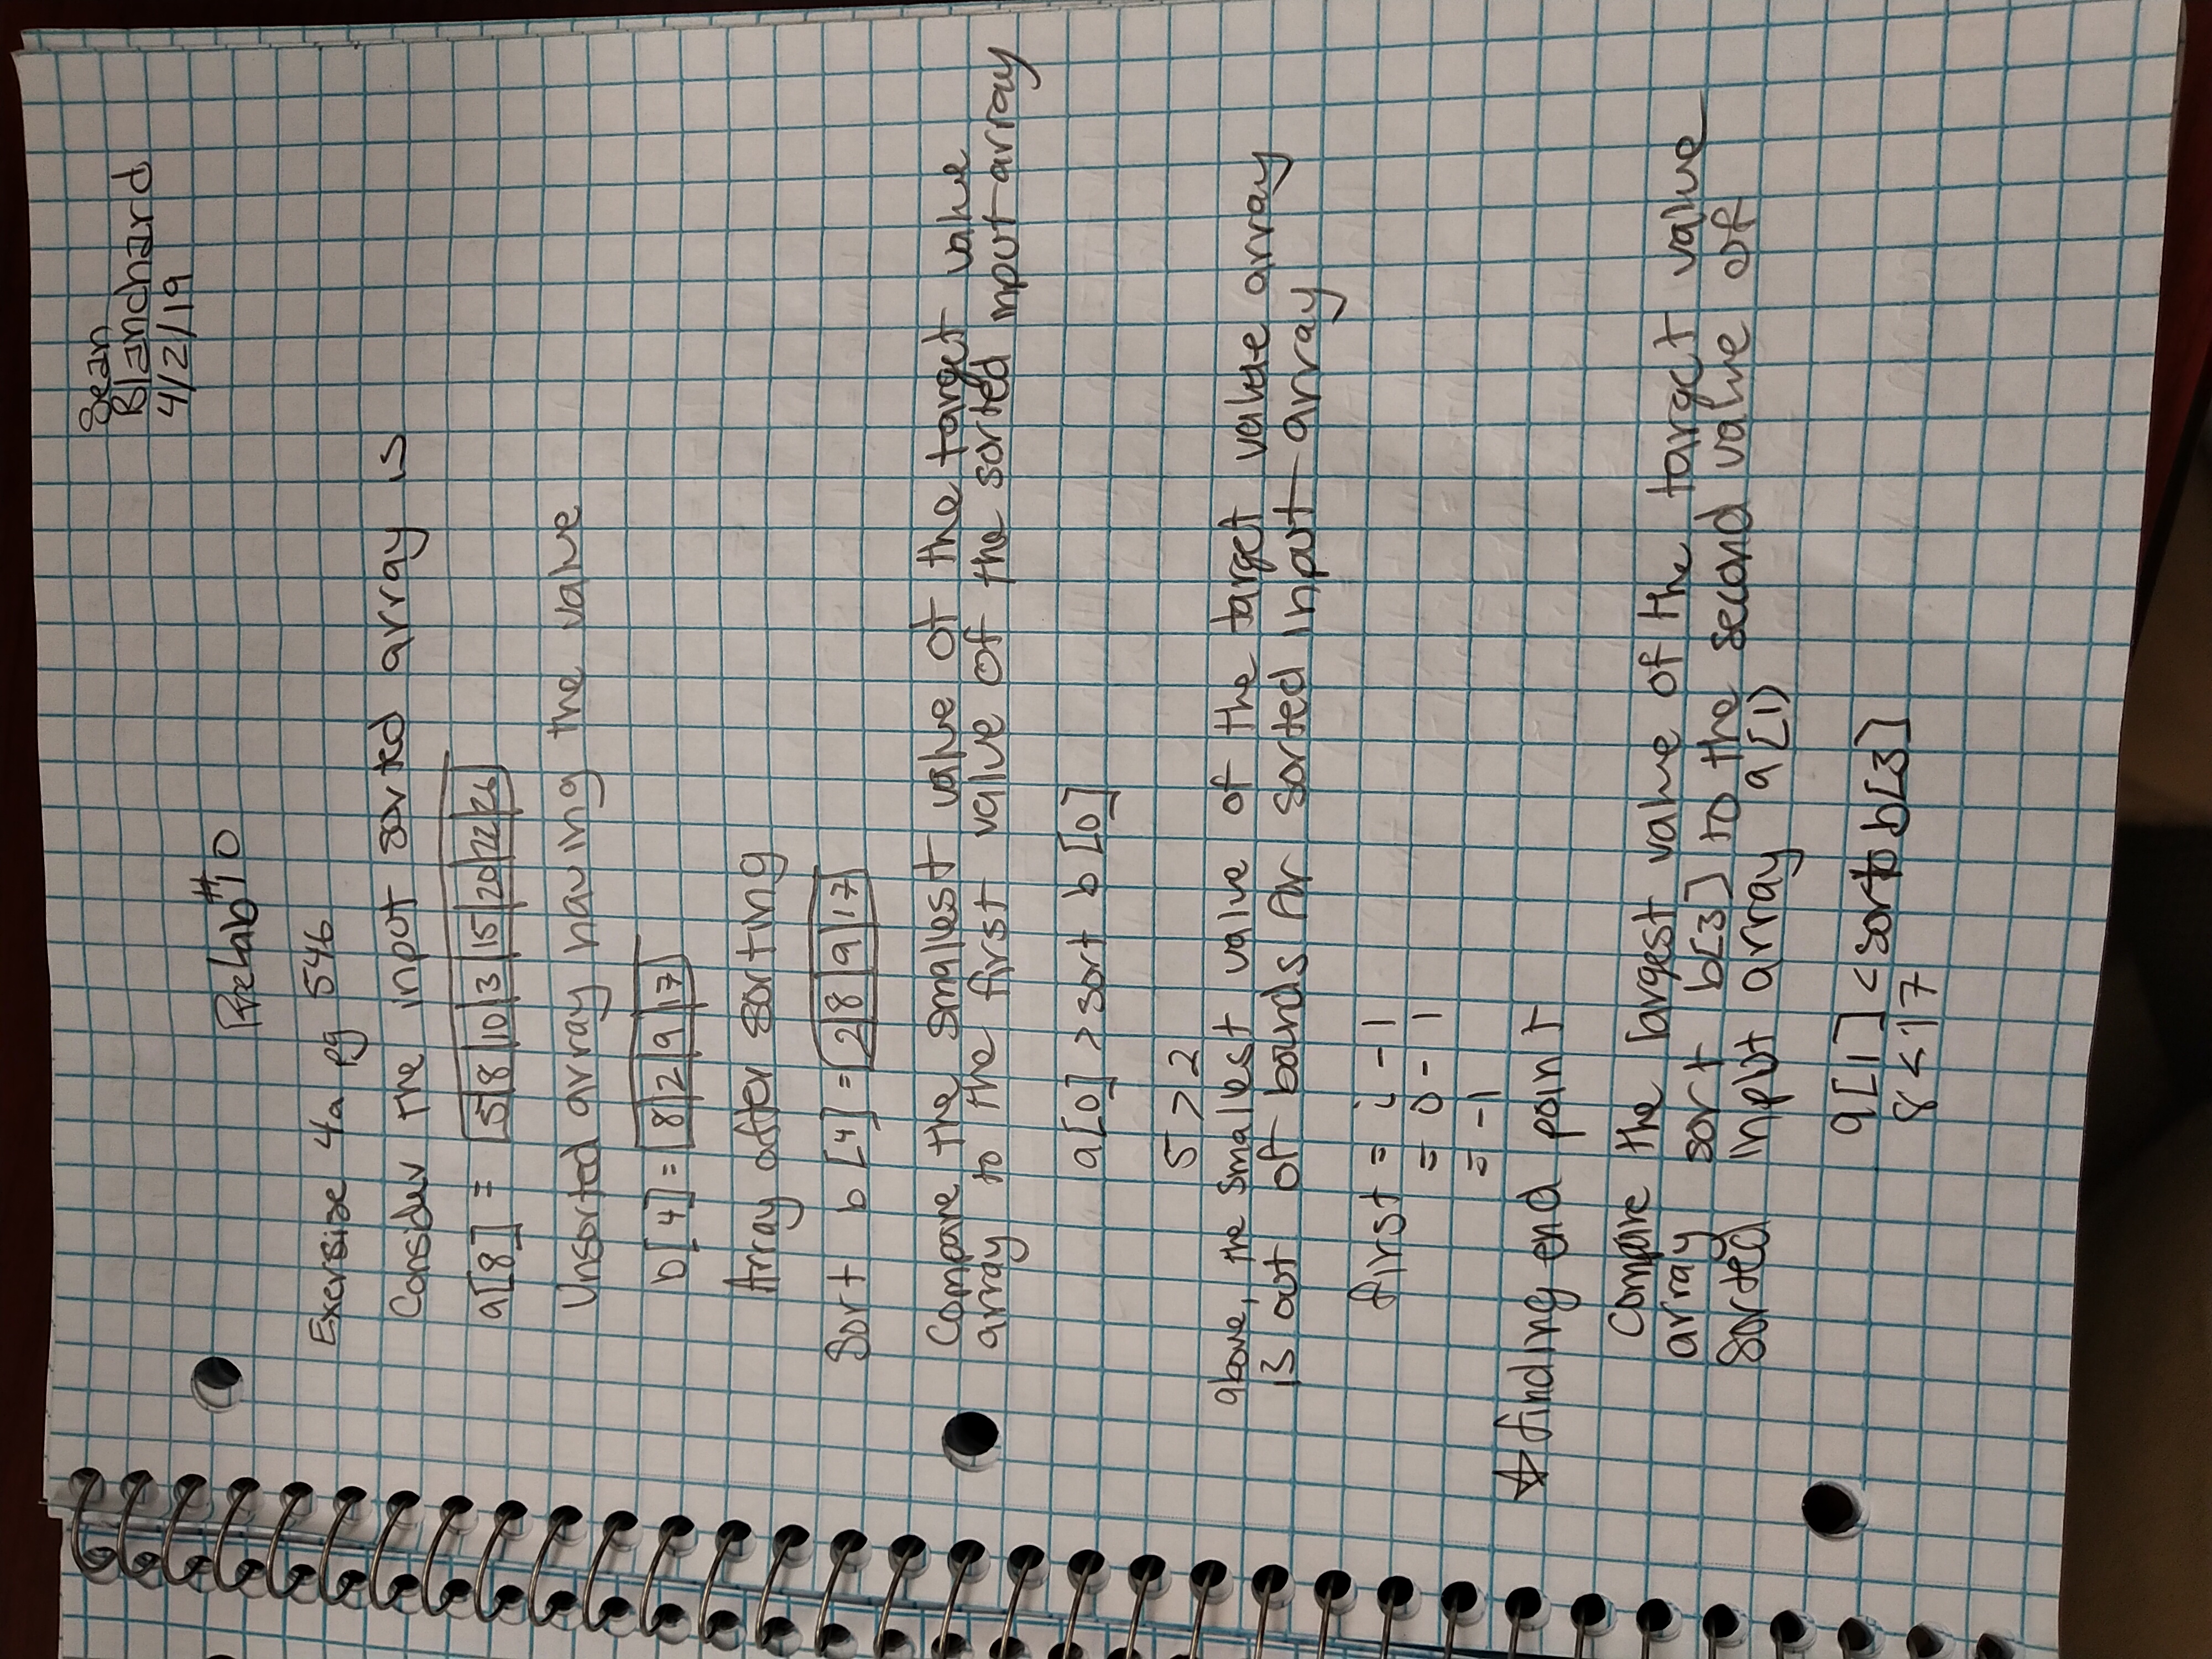 Sean
Blanchard
4/2/19
PreLab #10
Exersise 4a pg 546
Consider the input sorted array is
a[8] = 5 8 10 3 15 20 22 26
Unsorted array having the value
b[4] = 8 2 9 17
Array after sorting
Sort b[4] = 2 8 9 17
Compare the smallest value of the target value
array to the first value of the sorted input array
a[0] > sort b[0]
5 > 2
above, the smallest value of the target value array
is out of bounds for sorted input array
first = i - 1
= 0 - 1
= -1
☆ finding end point
Compare the largest value of the target value
array sort b[3] to the second value of
Sorted input array a[1]
a[1] < sort b[3]
8 < 17